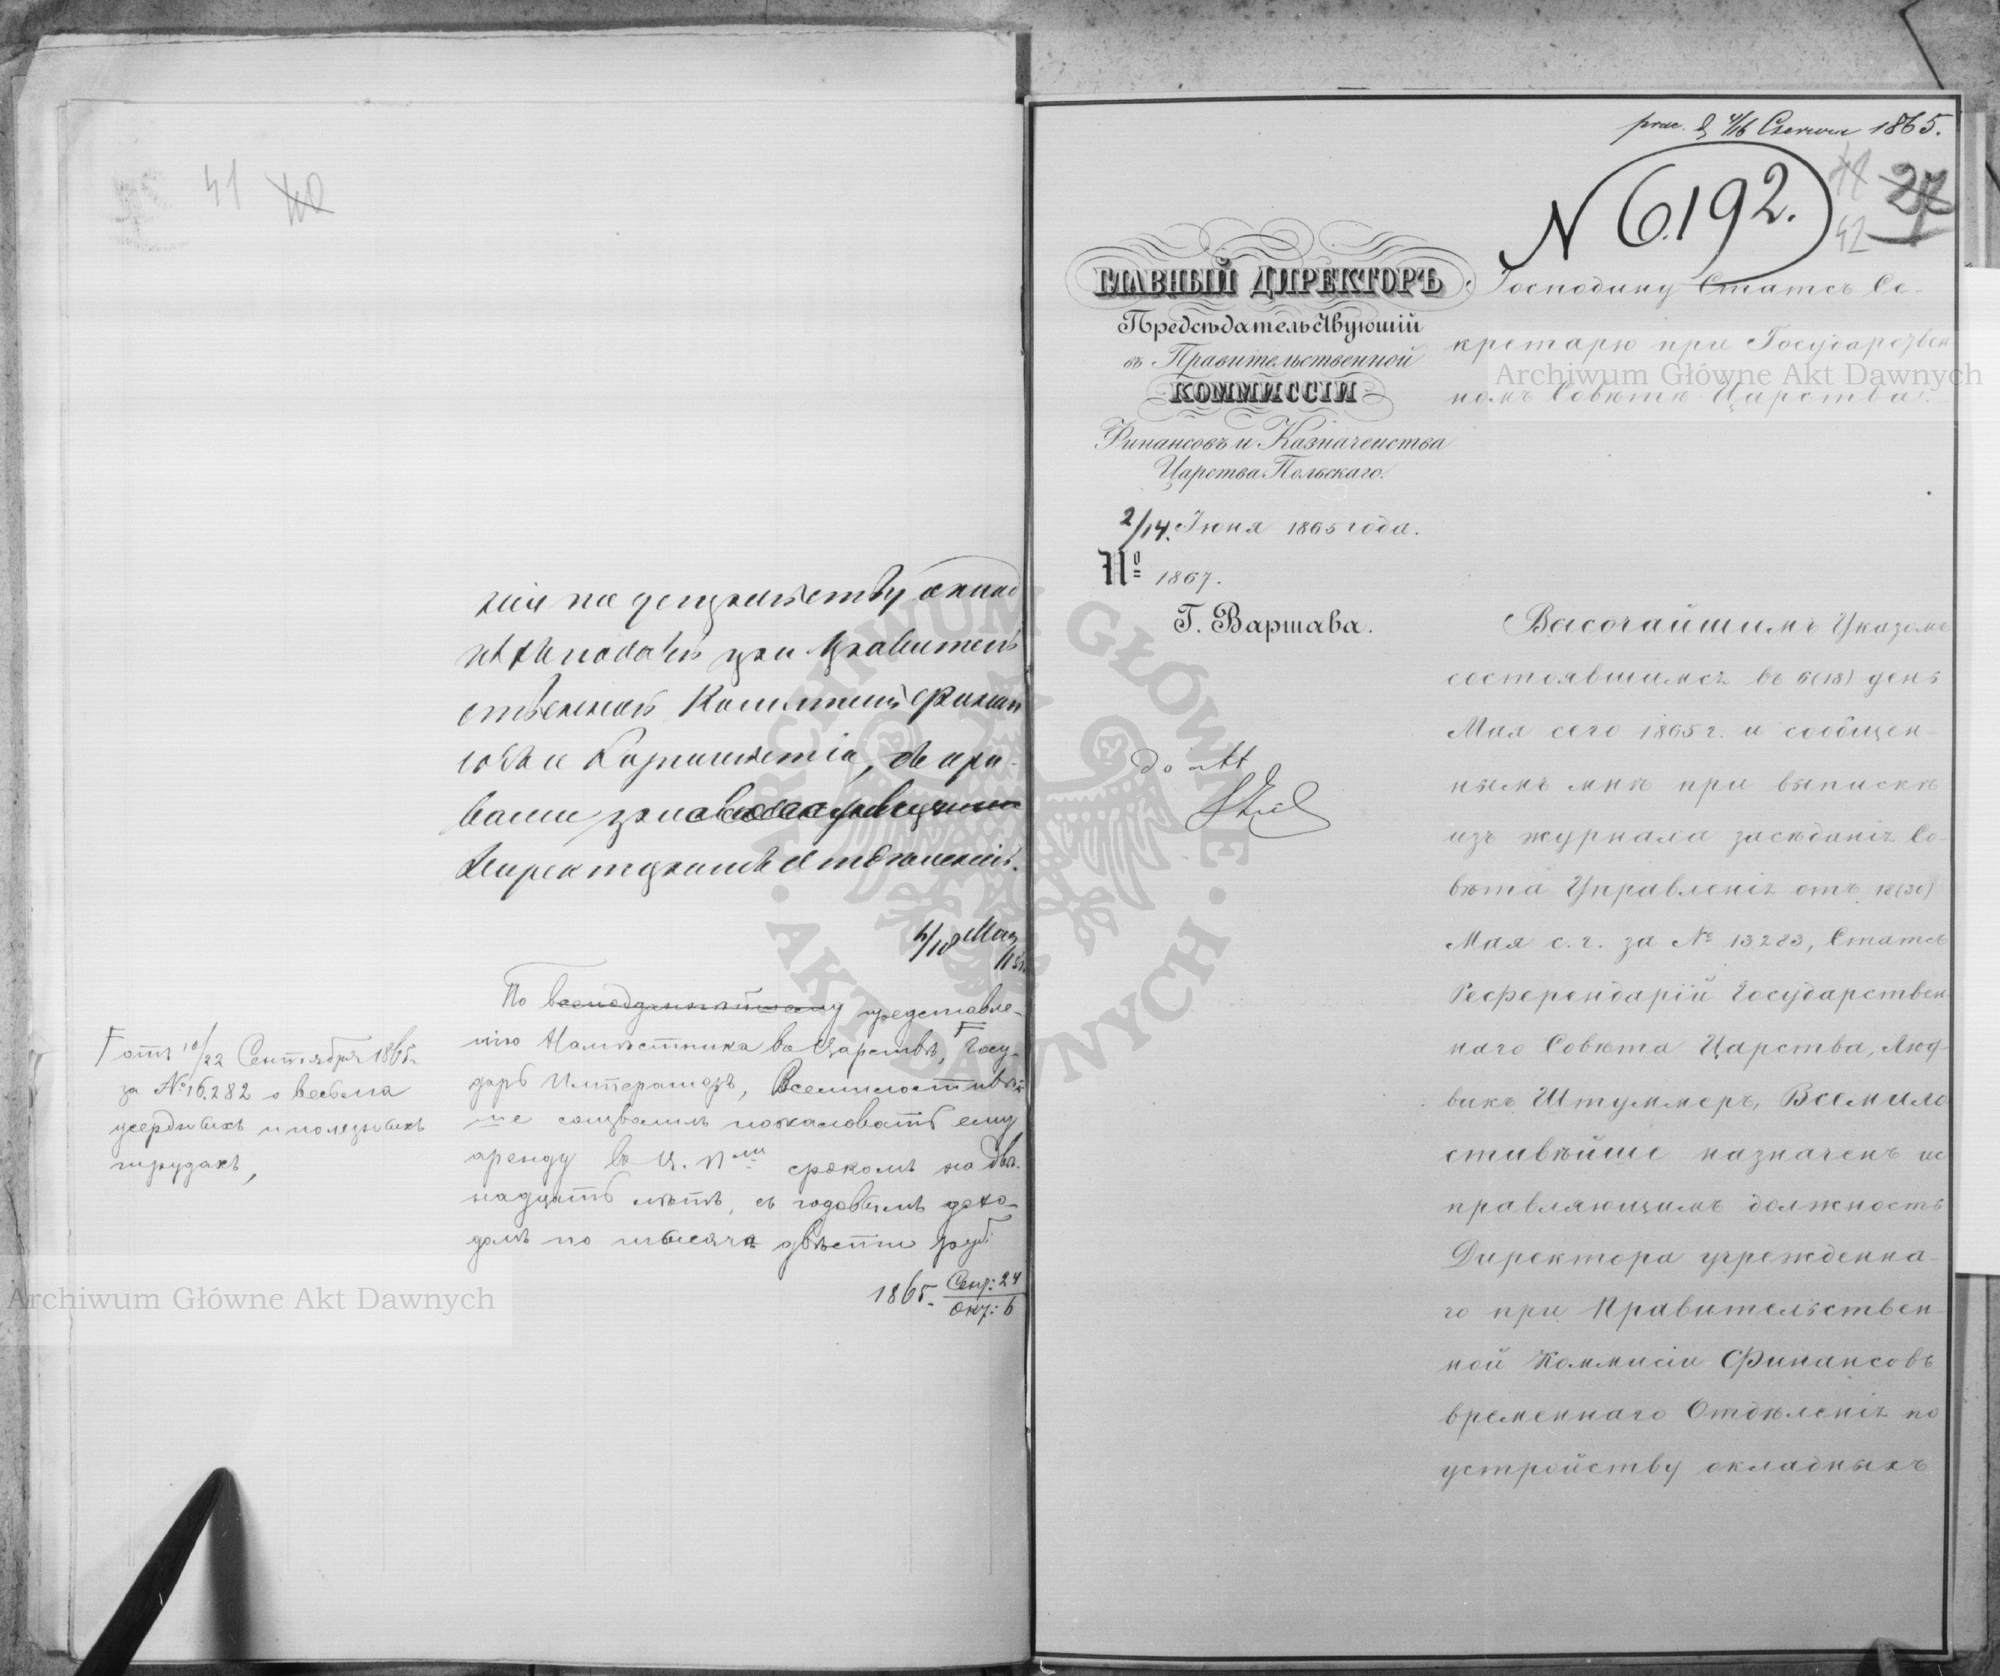 41 40
нія по устройству оклад
ныхъ податей при Правитель
ственной Коммисіи Финан
совъ и Казначейства, съ пра-
вами
Директорамъ Отдѣленій.
Мая
По всеподданнѣйшему представле-
нію Намѣстника въ Царствѣ, Госу-
дарь Императоръ, Всемилостивѣй
ше соизволилъ пожаловать ему
аренду въ Ц. П–мъ срокомъ на двѣ-
надцать лѣтъ, съ годовымъ дохо-
домъ по тысячѣ двѣсти руб:
1865. Сент: 24
Окт: 6
отъ 10/22 Сентября 1865 г.
за № 16.282 о весьма
усердныхъ и полезныхъ
трудахъ,
prae. d 4/16 Czerwca 1865.
N 6.192.
41 27
42
ГЛАВНЫЙ ДИРЕКТОРЪ
Предсѣдательствующій
въ Правительственной
КОММИССІИ
Финансовъ и Казначейства
Царства Польскаго.
2/14. Іюня 1865 года.
№ 1867.
Г. Варшава.
do akt
Господину Статсъ Се-
кретарю при Государствен
номъ Совѣтѣ Царства.
Высочайшимъ Указомъ
состоявшимся въ 6(18) день
Мая сего 1865 г. и сообщен-
нымъ мнѣ при выпискѣ
изъ журнала засѣданія Со-
вѣта Управленія отъ 18(30)
Мая с. г. за № 13283, Статсъ
Референдарій Государствен
наго Совѣта Царства, Люд-
викъ Штуммеръ, Всемило
стивѣйше назначенъ ис
правляющимъ должность
Директора учрежденна-
го при Правительствен-
ной Коммисіи Финансовъ
временнаго Отдѣленія по
устройству окладныхъ
Archiwum Główne Akt Dawnych
Archiwum Główne Akt Dawnych
ARCHIWUM GŁÓWNE AKT DAWNYCH